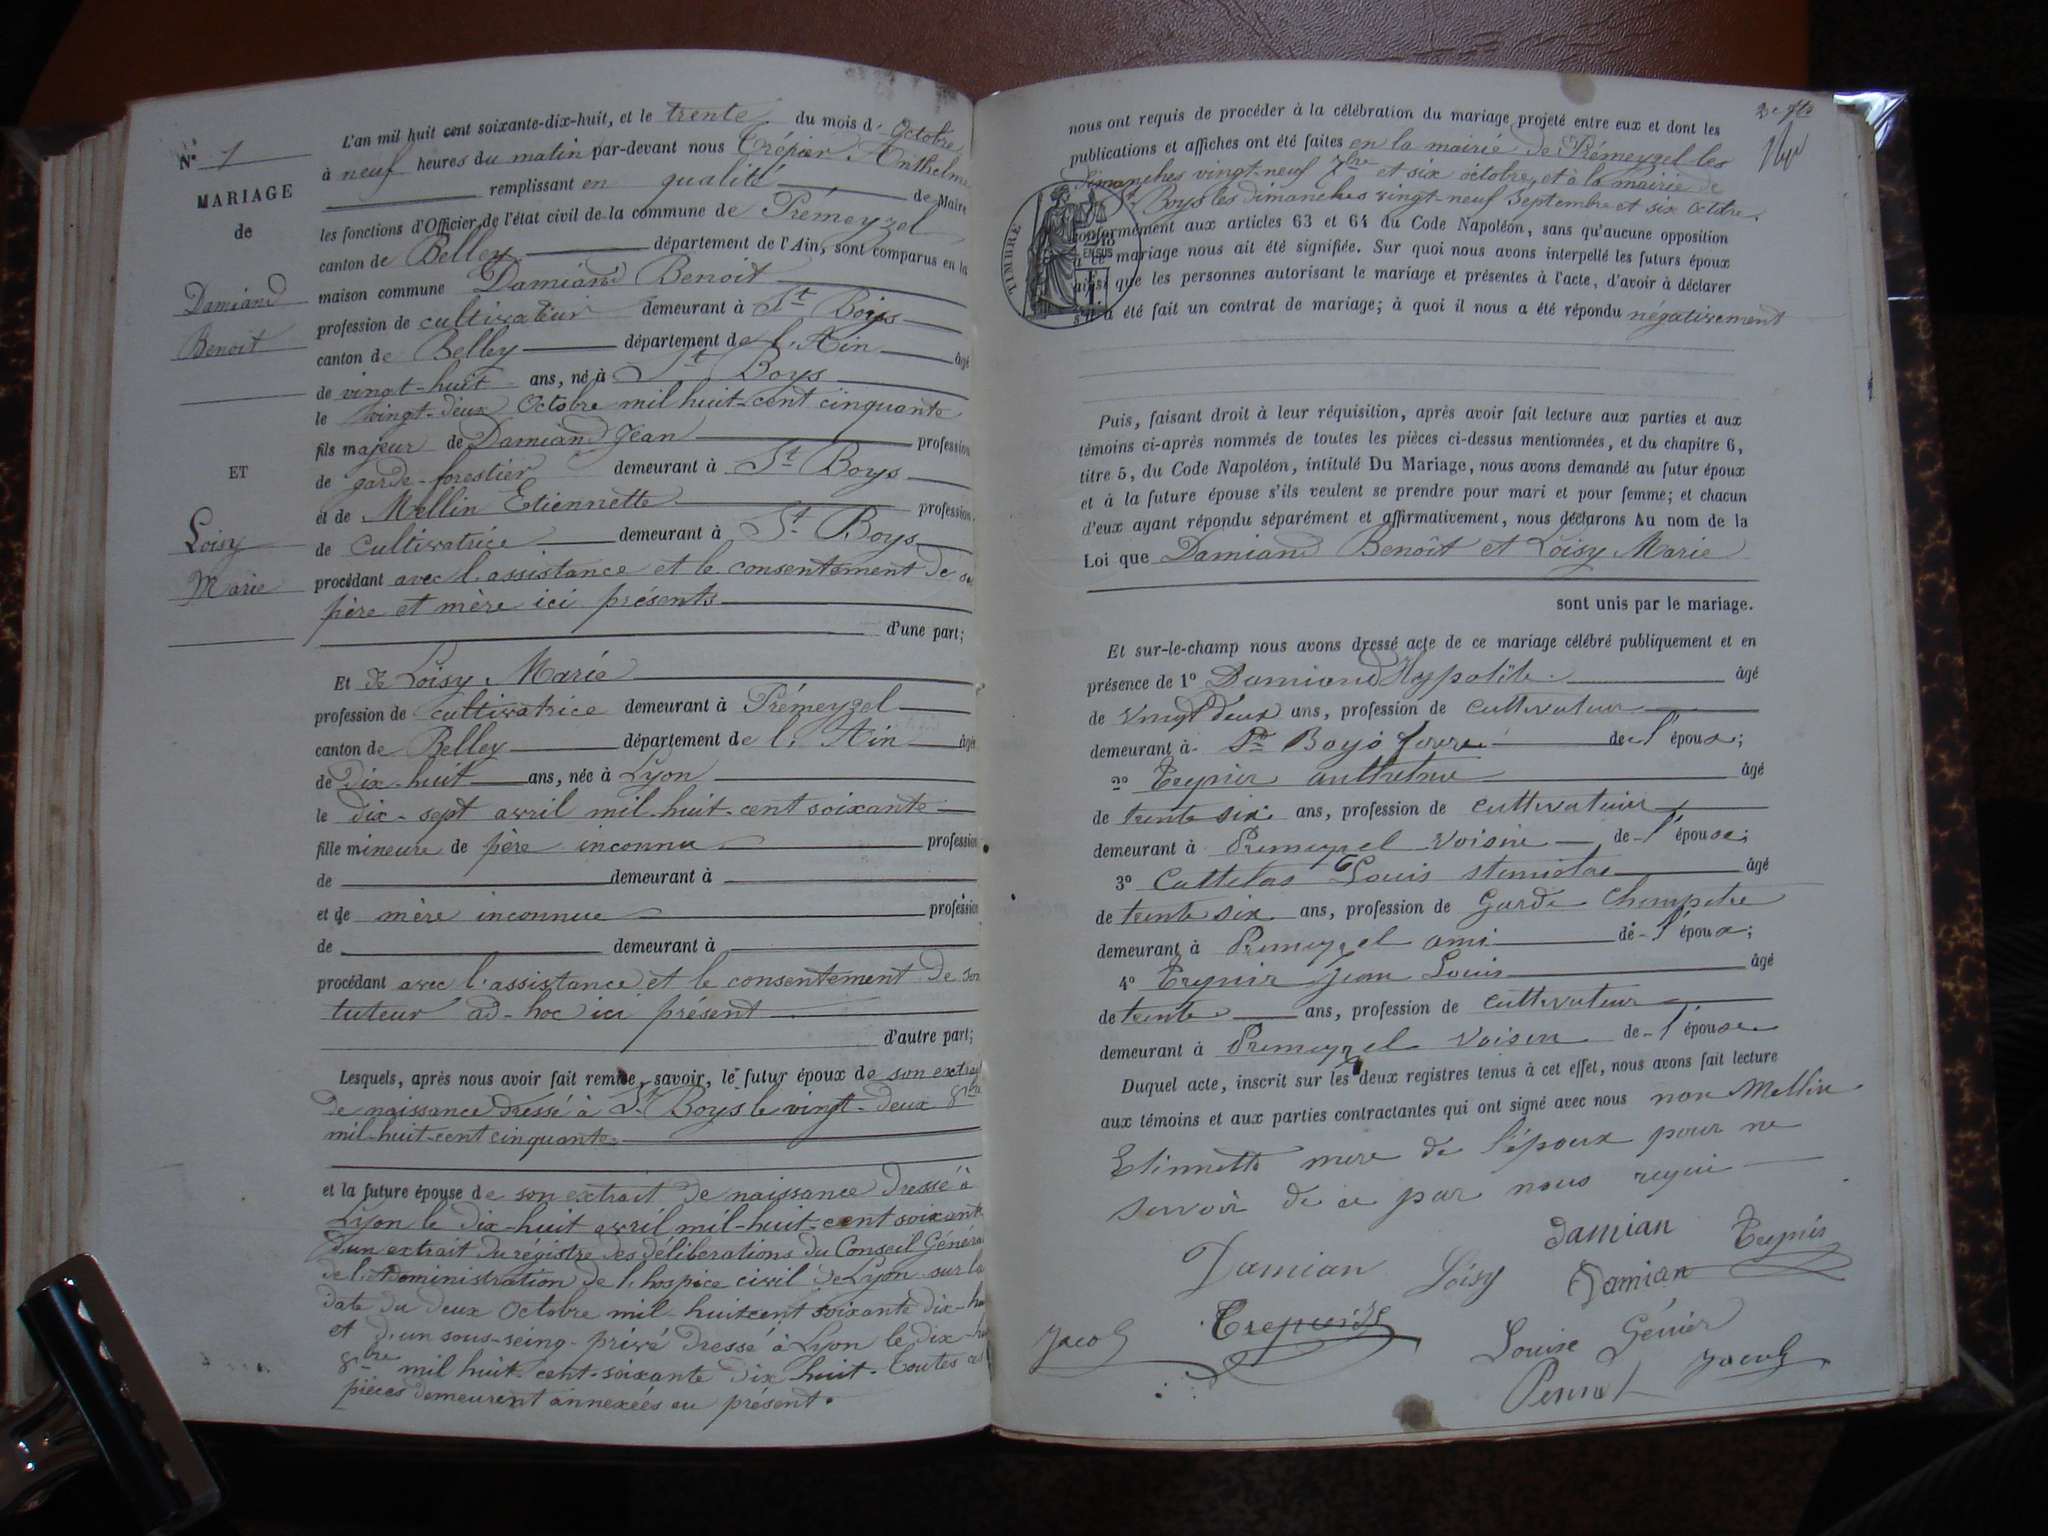 N° 1
MARIAGE
de
Damiand
Benoit
ET
Loisy
Marie
L'an mil huit cent soixante-dix-huit, et le trente du mois d'Octobre
à neuf heures du matin par-devant nous Trépier Anthelme
remplissant en qualité de Maire
les fonctions d'Officier de l'état civil de la commune de Prémeyzel
canton de Belley département de l'Ain, sont comparus en la
maison commune Damiand Benoit
profession de cultivateur demeurant à St Boys
canton de Belley département de l'Ain âgé
de vingt-huit ans, né à St Boys
le vingt-deux Octobre mil huit-cent cinquante
fils majeur de Damiand Jean profession
de garde-forestier demeurant à St Boys
et de Mellin Etiennette profession
de cultivatrice demeurant à St Boys
procédant avec l'assistance et le consentement de ses
père et mère ici présents
d'une part;
Et de Loisy Marie
profession de cultivatrice demeurant à Prémeyzel
canton de Belley département de l'Ain âgée
de dix-huit ans, née à Lyon
le dix-sept avril mil-huit-cent soixante
fille mineure de père inconnu profession
de demeurant à
et de mère inconnue profession
de demeurant à
procédant avec l'assistance et le consentement de son
tuteur ad-hoc ici présent
d'autre part;
Lesquels, après nous avoir fait remise, savoir, le futur époux de son extrait
de naissance dressé à St Boys le vingt-deux 8bre
mil-huit-cent cinquante
et la future épouse de son extrait de naissance dressé à
Lyon le dix-huit avril mil-huit-cent soixante
d'un extrait du régistre des délibérations du Conseil Général
de l'Administration de l'hospice civil de Lyon sur la
date du deux Octobre mil-huit cent soixante dix-hu
et d'un sous-seing-privé dressé à Lyon le dix-hu
8bre mil huit-cent-soixante dix huit. Toutes ces
pièces demeurent annexées au présent.
nous ont requis de procéder à la célébration du mariage projeté entre eux et dont les
publications et affiches ont été faites en la mairie de Prémeyzel les
dimanches vingt-neuf 7bre et six octobre, et à la mairie de
St Boys les dimanches vingt-neuf Septembre et six Octobre
conformément aux articles 63 et 64 du Code Napoléon, sans qu'aucune opposition
à ce mariage nous ait été signifiée. Sur quoi nous avons interpellé les futurs époux
ainsi que les personnes autorisant le mariage et présentes à l'acte, d'avoir à déclarer
s'il a été fait un contrat de mariage; à quoi il nous a été répondu négativement
TIMBRE
EN SUS
Puis, faisant droit à leur réquisition, après avoir fait lecture aux parties et aux
témoins ci-après nommés de toutes les pièces ci-dessus mentionnées, et du chapitre 6,
titre 5, du Code Napoléon, intitulé Du Mariage, nous avons demandé au futur époux
et à la future épouse s'ils veulent se prendre pour mari et pour femme; et chacun
d'eux ayant répondu séparément et affirmativement, nous déclarons Au nom de la
Loi que Damiand Benoît et Loisy Marie
sont unis par le mariage.
Et sur-le-champ nous avons dressé acte de ce mariage célébré publiquement et en
présence de 1° Damiand Hypolite âgé
de vingt deux ans, profession de cultivateur
demeurant à St Boys frère de l'époux;
2° Trepier anthelme âgé
de trente six ans, profession de cultivateur
demeurant à Premeyzel voisin de l'épouse;
3° Cattelas Louis âgé
de trente six ans, profession de Garde Champetre
demeurant à Premeyzel ami de l'époux;
4° Trepier Jean Louis âgé
de trente ans, profession de cultivateur
demeurant à Premeyzel voisin de l'épouse
Duquel acte, inscrit sur les deux registres tenus à cet effet, nous avons fait lecture
aux témoins et aux parties contractantes qui ont signé avec nous non Mellin
Etiennette mere de l'époux pour ne
savoir de ce par nous requi
Damian Loisy Damian Trepier
Damian
Jacob Trepier Louise Génier
Pernet Jacob